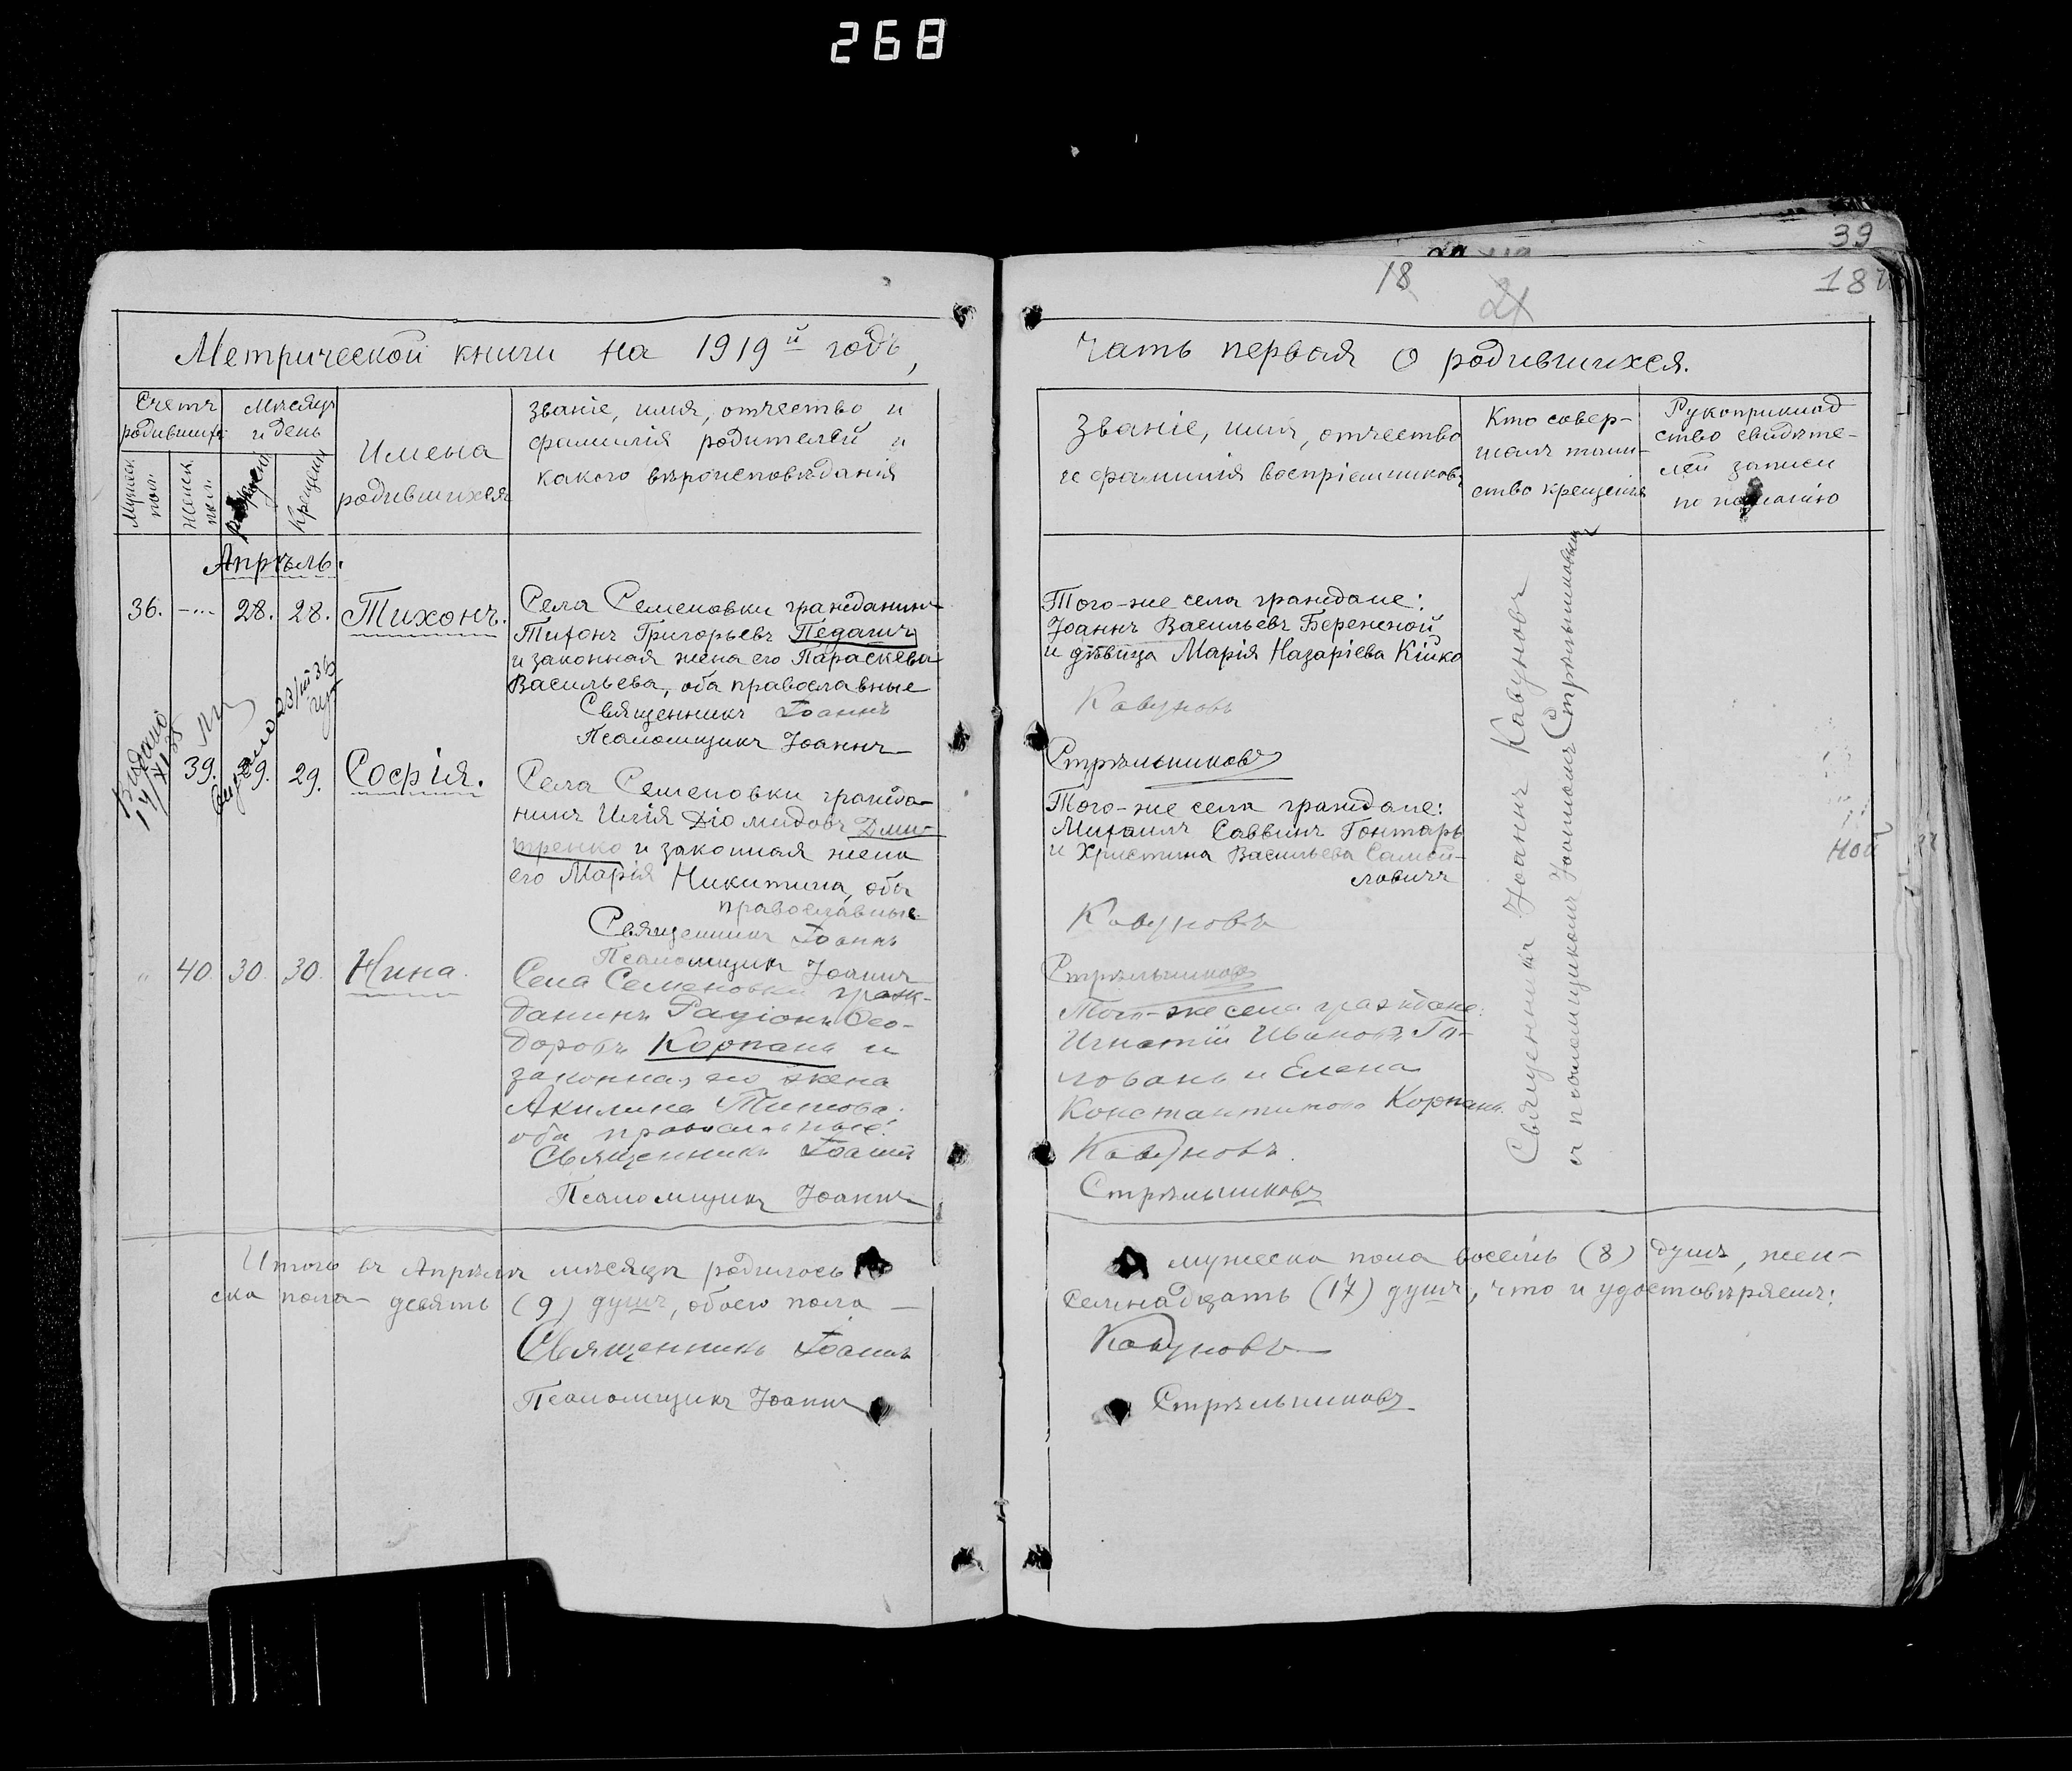 268
39
18
21
18
Метрической книги на 1919й годъ,
Часть первая о родившихся.
Счетъ родившихся
Мужск. пол.
Женск. пол.
Мѣсяцъ и день
рожденія
Крещенія
Имена
родившихся
Званіе, имя, отчество и
фамилія родителей и
какого вѣроисповѣданія
Званіе, имя, отчество
и фамилія воспріемниковъ
Кто совер-
шалъ таин-
ство крещенія
Рукоприклад
ство свидѣте-
лей записи
по желанію
Апрѣль.
36. -... 28. 28. Тихонъ.
Села Семеновки гражданинъ
Тихонъ Григорьевъ
и законная жена его Параскева
Васильева, оба православные
Священникъ Іоаннъ
Псаломщикъ Іоаннъ
Того-же села граждане:
Іоаннъ Васильевъ Бережной
и дѣвица Марія Назаріева Кійко
Кавуновъ
Стрѣльниковъ
Выдано
39. 29. 29. Софія.
Села Семеновки гражда-
нинъ Илія Діомидовъ Дми-
тренко и законная жена
его Марія Никитина, оба
православные
Священникъ Іоаннъ
Псаломщикъ Іоаннъ
Того-же села граждане:
Михаилъ Саввинъ Гонтарь
и Христина Васильева Самой-
ловичъ
Кавуновъ
Стрѣльниковъ
ной
" 40. 30. 30. Нина.
Села Семеновки граж-
данинъ Радіонъ Ѳео-
доровъ Корпань и
законная его жена
Акилина Титова
оба православные.
Священникъ Іоаннъ
Псаломщикъ Іоаннъ
Того-же села граждане:
Игнатій Ивановъ Го-
ловань и Елена
Константинова Корпань.
Кавуновъ.
Стрѣльниковъ
Священникъ Іоаннъ Кавуновъ
съ псаломщикомъ Іоанномъ Стрѣльниковымъ
Итого въ Апрѣлѣ мѣсяцѣ родилось
мужеска пола восемь (8) душъ, жен-
ска пола девять (9) душъ, обоего пола —
семнадцать (17) душъ, что и удостовѣряемъ:
Священникъ Іоаннъ
Кавуновъ
Псаломщикъ Іоаннъ
Стрѣльниковъ